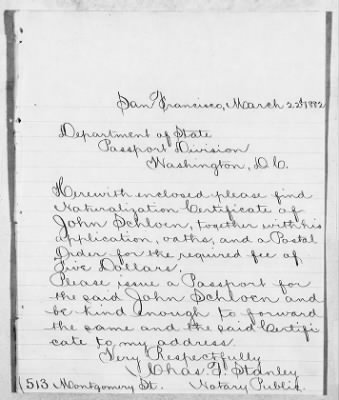 San Francisco, March 22d 1882
Department of State
Passport Division
Washington, D.C.
Herewith enclosed please find
Naturalization Certificate of
John Schloen, together with his
application, oaths, and a Postal
Order for the required fee of
Five Dollars.
Please issue a Passport for
the said John Schloen and
be kind enough to forward
the same and the said Certifi
cate to my address.
Very Respectfully
Chas. F. Stanley
(513 Montgomery St. Notary Public.